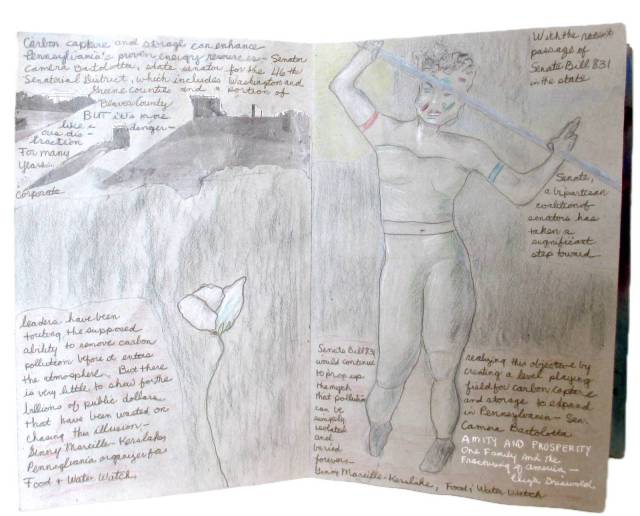 Carbon capture and storage can enhance
Pennsylvania's proven energy resources - Senator
Camera Bartolotta, state senator for the 46th
Senatorial District, which includes Washington and
Greene Counties and a portion of
Beaver County
BUT it's more
like a danger-
ous dis-
traction
For many
years...
Corporate
leaders have been
touting the supposed
ability to remove carbon
pollution before it enters
the atmosphere. But there
is very little to show for the
billions of public dollars
that have been wasted on
chasing this illusion -
Ginny Marcille-Kerslake,
Pennsylvania organizer for
Food & Water Watch.
With the recent
passage of
Senate Bill 831
in the state
Senate,
a bipartisan
coalition of
senators has
taken a
significant
step toward
realizing this objective by
creating a level playing
field for carbon capture
and storage to expand
in Pennsylvania - Sen.
Camera Bartolotta
Senate Bill 831
would continue
to prop up
the myth
that pollution
can be
simply
isolated
and
buried
forever -
Ginny Marcille-Kerslake, Food & Water Watch
AMITY AND PROSPERITY
One Family and the
Fracturing of America -
Eliza Griswold